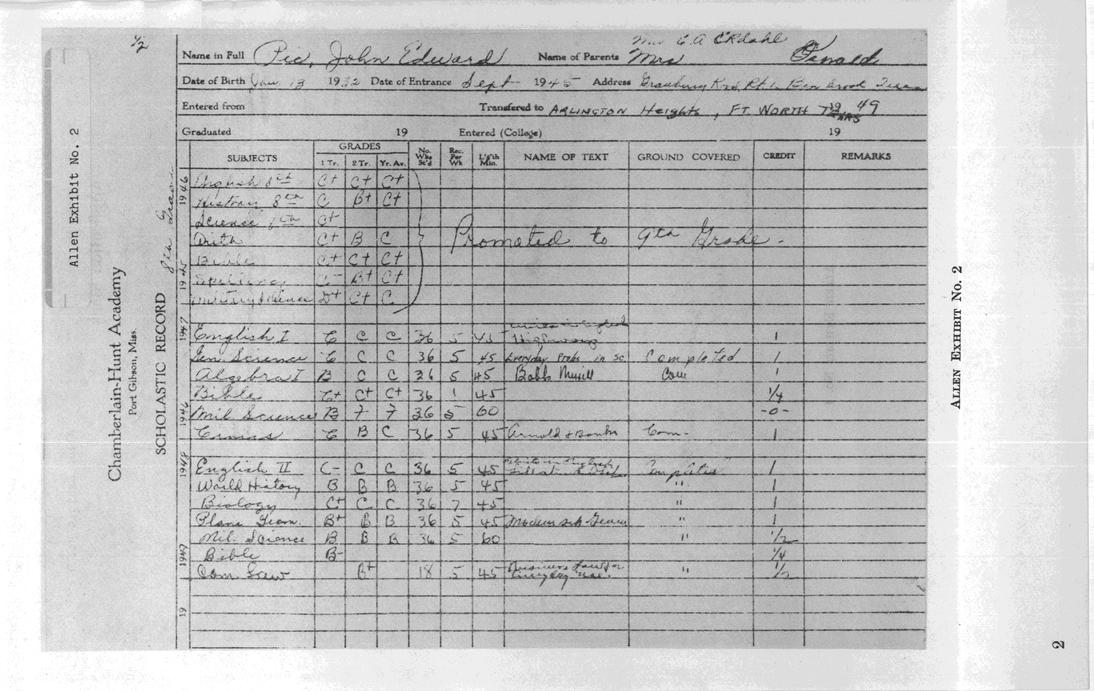 1/2
Allen Exhibit No. 2
Chamberlain-Hunt Academy
Port Gibson, Miss.
SCHOLASTIC RECORD
Mrs E.A. Ekdahl
Name in Full Pic, John Edward Name of Parents Mrs Oswald
Date of Birth Jan 13 1932 Date of Entrance Sept 1945 Address Granbury Rt. Benbrook Texas
Entered from Transferred to ARLINGTON Heights, FT. WORTH TEXAS 19 49
Graduated 19 Entered (College) 19
SUBJECTS GRADES No. Wks St'd Rec. Per Wk L'g'th Min. NAME OF TEXT GROUND COVERED CREDIT REMARKS
1 Tr. 2 Tr. Yr. Av.
1945 1946 8th Grade
English 8th C+ C+ C+
History 8th C B+ C+
Science 8th C+
Arith C+ B C Promoted to 9th Grade.
Bible C+ C+ C+
Spelling C- B+ C+
Military Science D+ C+ C
1946 1947
English I C C C 36 5 45 Highways 1
Gen Science C C C 36 5 45 Everyday Probs. in Sc. Completed 1
Algebra I B C C 36 5 45 Bobbs Merrill Com 1
Bible C+ C+ C+ 36 1 45 1/4
Mil Science B F F 36 5 60 -0-
Civics C B C 36 5 45 Com- 1
1947 1948
English II C- C C 36 5 45 Completed 1
World History B B B 36 5 45 " 1
Biology C+ C C 36 7 45 " 1
Plane Geom. B+ B B 36 5 45 Modern " 1
Mil. Science B B B 36 5 60 " 1/2
Bible B- 1/4
Com Law B+ 18 5 45 Business Law for Everyday Use. " 1/2
19
ALLEN EXHIBIT No. 2
2